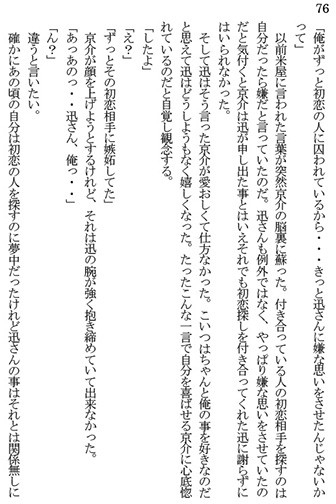 76
「俺がずっと初恋の人に囚われているから・・・きっと迅さんに嫌な思いをさせたんじゃないか
って」
以前米屋に言われた言葉が突然京介の脳裏に蘇った。付き合っている人の初恋相手を探すのは
自分だったら嫌だと言っていたのだ。迅さんも例外ではなく、やっぱり嫌な思いをさせていたの
だと気付くと京介は迅が申し出た事とはいえそれでも初恋探しを付き合ってくれた迅に謝らずに
はいられなかった。
そして迅はそう言った京介が愛おしくて仕方なかった。こいつはちゃんと俺の事を好きなのだ
と思えて迅はどうしようもなく嬉しくなった。たったこんな一言で自分を喜ばせる京介に心底惚
れているのだと自覚し観念する。
「したよ」
「え？」
「ずっとその初恋相手に嫉妬してた」
京介が顔を上げようとするけれど、それは迅の腕が強く抱き締めていて出来なかった。
「あっあのっ・・迅さん、俺っ・・」
「ん？」
違うと言いたい。
確かにあの頃の自分は初恋の人を探すのに夢中だったけれど迅さんの事はそれとは関係無しに